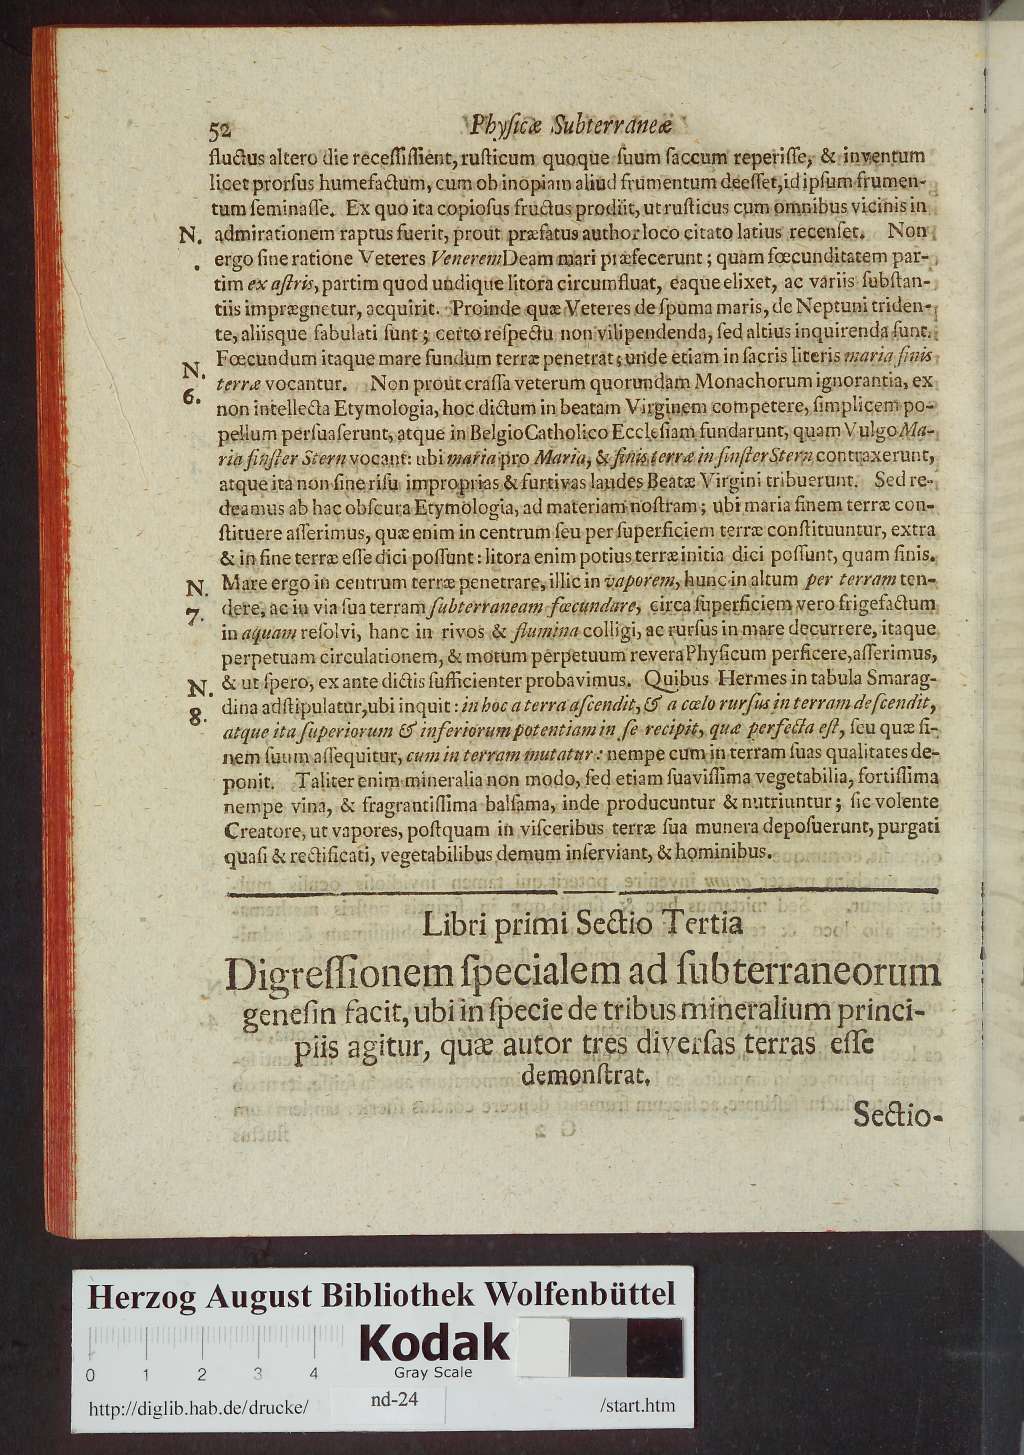 52 Physicæ Subterraneæ
fluctus altero die recessissent, rusticum quoque suum saccum reperisse, & inventum
licet prorsus humefactum, cum ob inopiam aliud frumentum deesset, id ipsum frumen-
tum seminasse. Ex quo ita copiosus fructus prodiit, ut rusticus cum omnibus vicinis in
N. admirationem raptus fuerit, prout præfatus author loco citato latius recenset. Non
. ergo sine ratione Veteres Venerem Deam mari præfecerunt; quam fœcunditatem par-
tim ex astris, partim quod undique litora circumfluat, eaque elixet, ac variis substan-
tiis imprægnetur, acquirit. Proinde quæ Veteres de spuma maris, de Neptuni triden-
te, aliisque fabulati sunt; certo respectu non vilipendenda, sed altius inquirenda sunt.
N. Fœcundum itaque mare fundum terræ penetrat; unde etiam in sacris literis maria finis
6. terræ vocantur. Non prout crassa veterum quorundam Monachorum ignorantia, ex
non intellecta Etymologia, hoc dictum in beatam Virginem competere, simplicem po-
pellum persuaserunt, atque in Belgio Catholico Ecclesiam fundarunt, quam Vulgo Ma-
ria finster Stern vocant: ubi maria pro Maria, & finis terræ in finster Stern contraxerunt,
atque ita non sine risu improprias & furtivas laudes Beatæ Virgini tribuerunt. Sed re-
deamus ab hac obscura Etymologia, ad materiam nostram; ubi maria finem terræ con-
stituere asserimus, quæ enim in centrum seu per superficiem terræ constituuntur, extra
& in fine terræ esse dici possunt: litora enim potius terræ initia dici possunt, quam finis.
N. Mare ergo in centrum terræ penetrare, illic in vaporem, hunc in altum per terram ten-
7. dere, ac in via sua terram subterraneam fœcundare, circa superficiem vero frigefactum
in aquam resolvi, hanc in rivos & flumina colligi, ac rursus in mare decurrere, itaque
perpetuam circulationem, & motum perpetuum revera Physicum perficere, asserimus,
N. & ut spero, ex ante dictis sufficienter probavimus. Quibus Hermes in tabula Smarag-
8. dina adstipulatur, ubi inquit: in hoc a terra ascendit, & a cœlo rursus in terram descendit,
atque ita superiorum & inferiorum potentiam in se recipit, quæ perfecta est, seu quæ fi-
nem suum assequitur, cum in terram mutatur: nempe cum in terram suas qualitates de-
ponit. Taliter enim mineralia non modo, sed etiam suavissima vegetabilia, fortissima
nempe vina, & fragrantissima balsama, inde producuntur & nutriuntur; sic volente
Creatore, ut vapores, postquam in visceribus terræ sua munera deposuerunt, purgati
quasi & rectificati, vegetabilibus demum inserviant, & hominibus.
Libri primi Sectio Tertia
Digressionem specialem ad subterraneorum
genesin facit, ubi in specie de tribus mineralium princi-
piis agitur, quæ autor tres diversas terras esse
demonstrat.
Sectio-
Herzog August Bibliothek Wolfenbüttel
Kodak
Gray Scale
0 1 2 3 4
http://diglib.hab.de/drucke/ nd-24 /start.htm